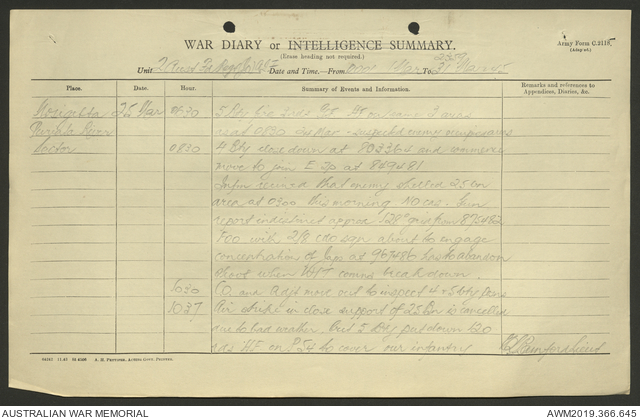 Army Form C.2118.
(Adapted)
WAR DIARY or INTELLIGENCE SUMMARY.
(Erase heading not required.)
Unit 2 Aust Fd Regt AIF Date and Time—From 0001 Mar To 2359 31 Mar 45
Place. Date. Hour. Summary of Events and Information. Remarks and references to Appendices, Diaries, &c.
25 Mar 0630 5 Bty
area at 0830 24 Mar - suspected enemy
Puriata River
Sector 0830 4 Bty close down at 802364 and commence
move to join E Tp at 849481
Infm received that enemy shelled 25 Bn
area at 0300 this morning. No cas. Gun
report indicated approx 128° grid from 875482
FOO with 2/8 Cdo Sqn about to engage
concentration of Japs at 967486 has to abandon
shoot when W/T comns break down.
1030 CO and Adjt move out to inspect 4 & 5 Bty posns
1037 Air strike in close support of 25 Bn is cancelled
due to bad weather. But 5 Bty put down 120
rds HE on P54 to cover our infantry
Lieut
66242 11.43
A. H. PETTIFER, ACTING GOVT. PRINTER.
AUSTRALIAN WAR MEMORIAL
AWM2019.366.645